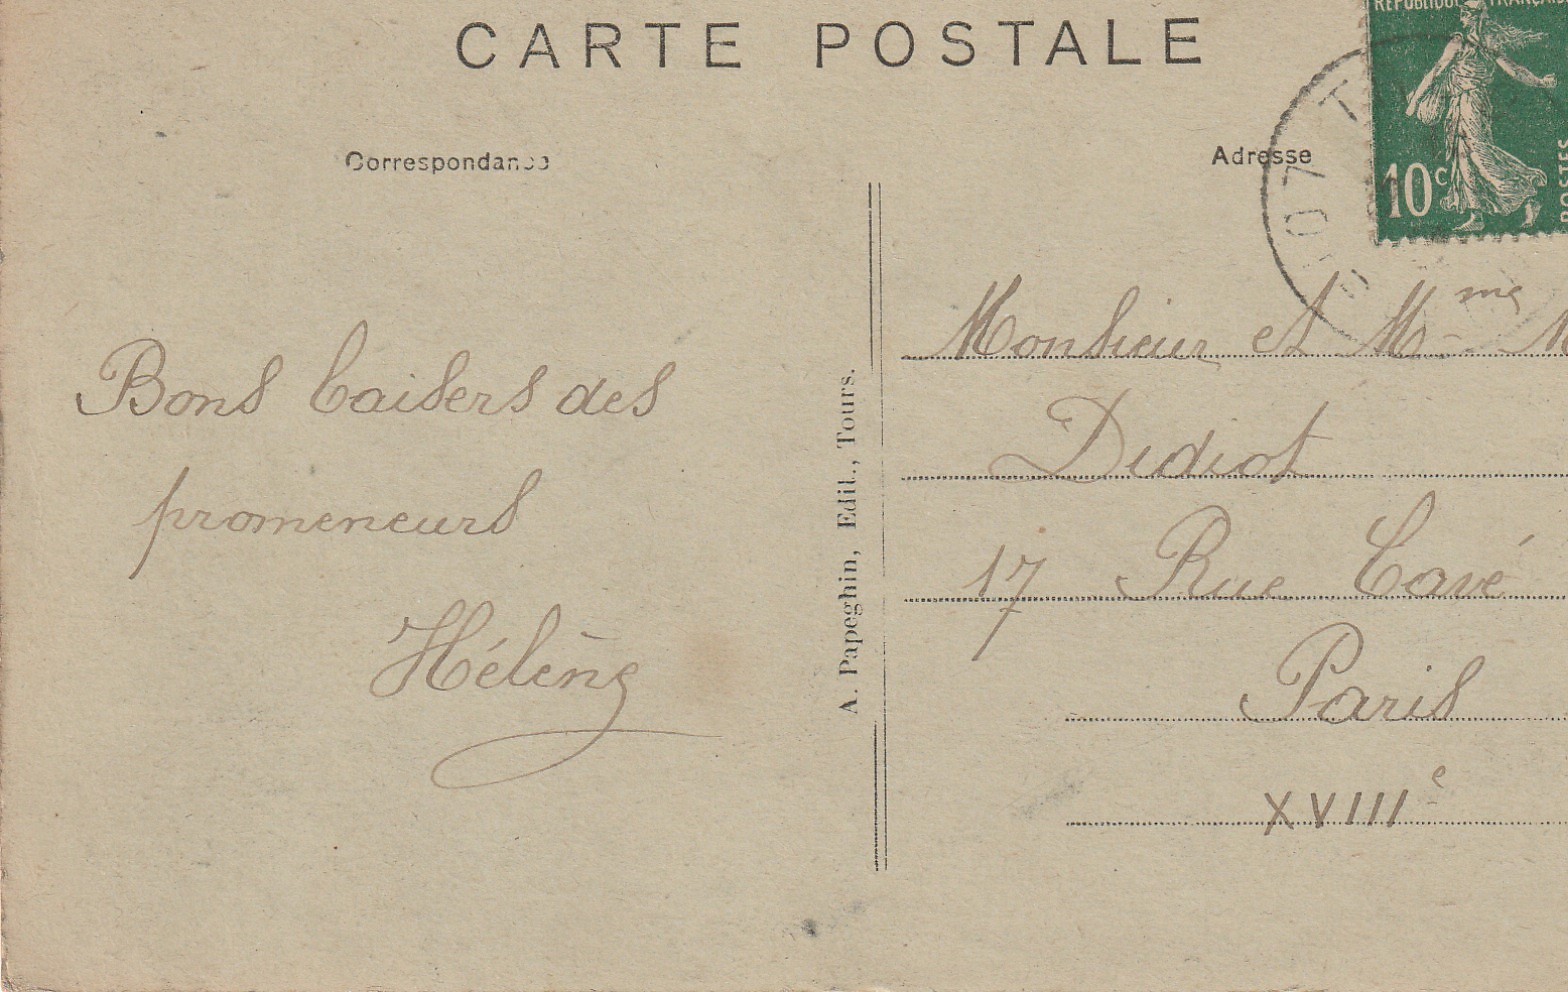 CARTE POSTALE
Correspondance
Adresse
RÉPUBLIQUE FRANÇAISE
10c
POSTES
Bons baisers des
promeneurs
Hélène
A. Papeghin, Edit., Tours.
Monsieur et Mme M
Didiot
17 Rue Cavé
Paris
XVIIIe